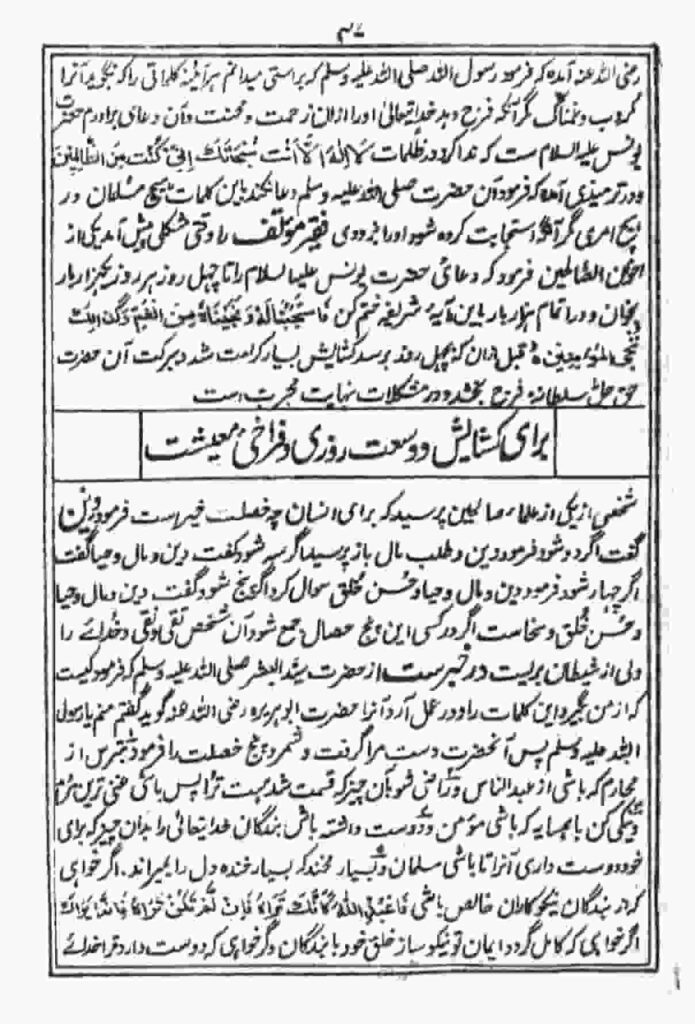 ۳۷
رضی اللہ عنہ آمدہ کہ فرمود رسول اللہ صلی اللہ علیہ وسلم کہ براستی میدانم ہر آئینہ کلماتی را کہ نگوید آنرا
کرب و غمناکی مگر آنکہ فرج دہد خدایتعالیٰ اورا ازان زحمت و محنت و آن دعای برادرم حضرت
یونس علیہ السلام ست کہ ندا کرد در ظلمات لا الہ الا انت سبحانک انی کنت من الظالمین
و در ترمیذی آمدہ کہ فرمود آن حضرت صلی اللہ علیہ وسلم دعا نکند باین کلمات ہیچ مسلمان در
ہیچ امری مگر آنکہ استجابت کردہ شود اورا فقیر مؤلف را وقتی مشکلی پیش آمد یکی از
الصالحین فرمود کہ دعائی حضرت یونس علیہ السلام را تا چہل روز ہر روز یکہزار بار
بخوان و در اتمام ہزار بار باین آیۂ شریفہ ختم کن فاستجبنا لہ ونجیناہ من الغم وکذلک
ننجی المؤمنین قبل ازان کہ بچہل روز برسد کشایش بسیار کرامت شد ببرکت آن حضرت
حق جل سلطانہ فرج بخشد و در مشکلات نہایت مجرب است
برای کشایش و وسعت روزی و فراخی معیشت
شخصی از یکی از علماء صالحین پرسید کہ برای انسان چہ خصلت خیر است فرمود دین
گفت اگر دو شود فرمود دین و طلب مال باز پرسید اگر سہ شود گفت دین و مال و حیا گفت
اگر چہار شود فرمود دین و مال و حیا و حسن خلق سوال کرد اگر پنج شود گفت دین و مال و حیا
و حسن خلق و سخاست اگر در کسی این پنج خصال جمع شود آن شخص تقی و نقی و خدائے را
ولی از شیطان بریست در خبرست از حضرت سید البشر صلی اللہ علیہ وسلم کہ فرمود کیست
کہ از من بگیرد این کلمات را و در عمل آرد آنرا حضرت ابوہریرہ رضی اللہ عنہ گوید گفتم منم یا رسول
اللہ علیہ وسلم پس آنحضرت دست مرا گرفت و شمرد پنج خصلت را فرمود بترس از
محارم کہ باشی از عبد الناس و راضی شو بآن چیز کہ قسمت شدہ است ترا پس باشی غنی ترین مردم
و نیکی کن با ہمسایہ کہ باشی مؤمن و دوست داشتہ باش بندگان خدایتعالی را بدان چیز کہ برای
خود دوست داری آنرا تا باشی مسلمان و بسیار مخند کہ بسیار خندہ دل را بمیراند۔ اگر خواہی
کہ از بندگان نیکوکاران خالص باشی فاعبد اللہ کانک تراہ فان لم تکن تراہ فانہ یراک
اگر خواہی کہ کامل گردد ایمان تو نیکو ساز خلق خود با بندگان و گر خواہی کہ دوست دارد ترا خدائے